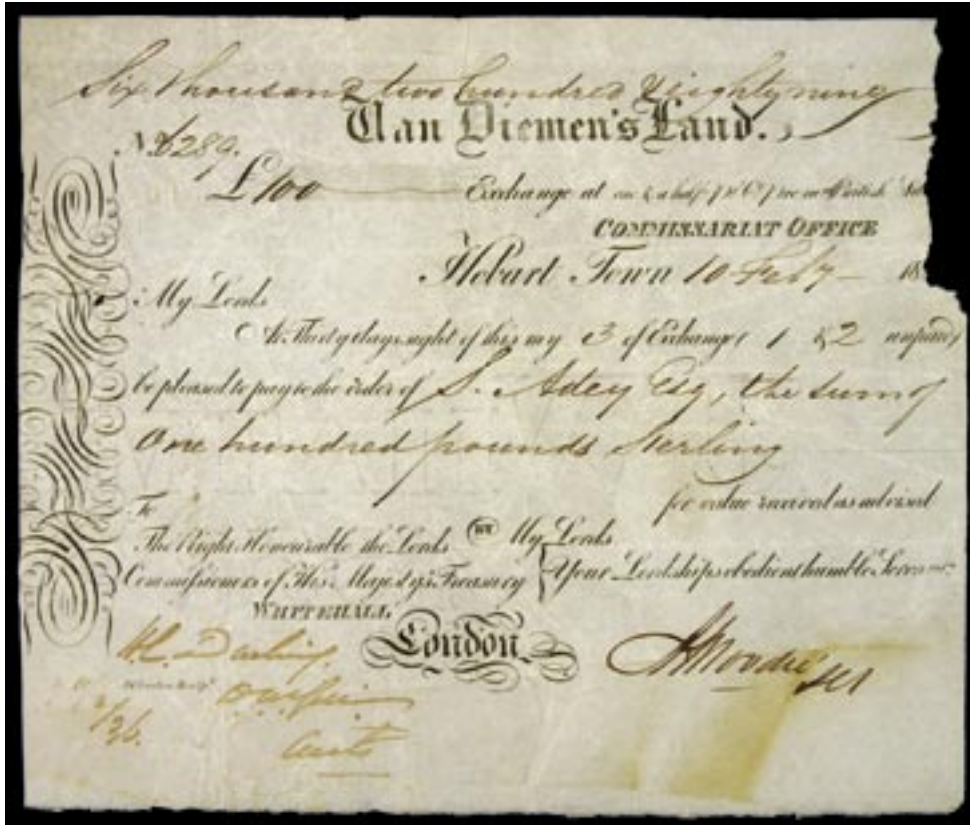 Six Thousand two hundred & eighty nine
Van Diemen's Land.
No. 6289.
£100 Exchange at one & a half p Ct
COMMISSARIAT OFFICE
Hobart Town 10 Feby 18
My Lords
At Thirty days sight of this my 3 of Exchange (1 & 2 unpaid)
be pleased to pay to the order of S. Adey Esq, the sum of
One hundred pounds Sterling
for value received as advised
To
The Right Honourable the Lords My Lords
Commissioners of His Majesty's Treasury Your Lordships obedient humble Servant
WHITEHALL
London